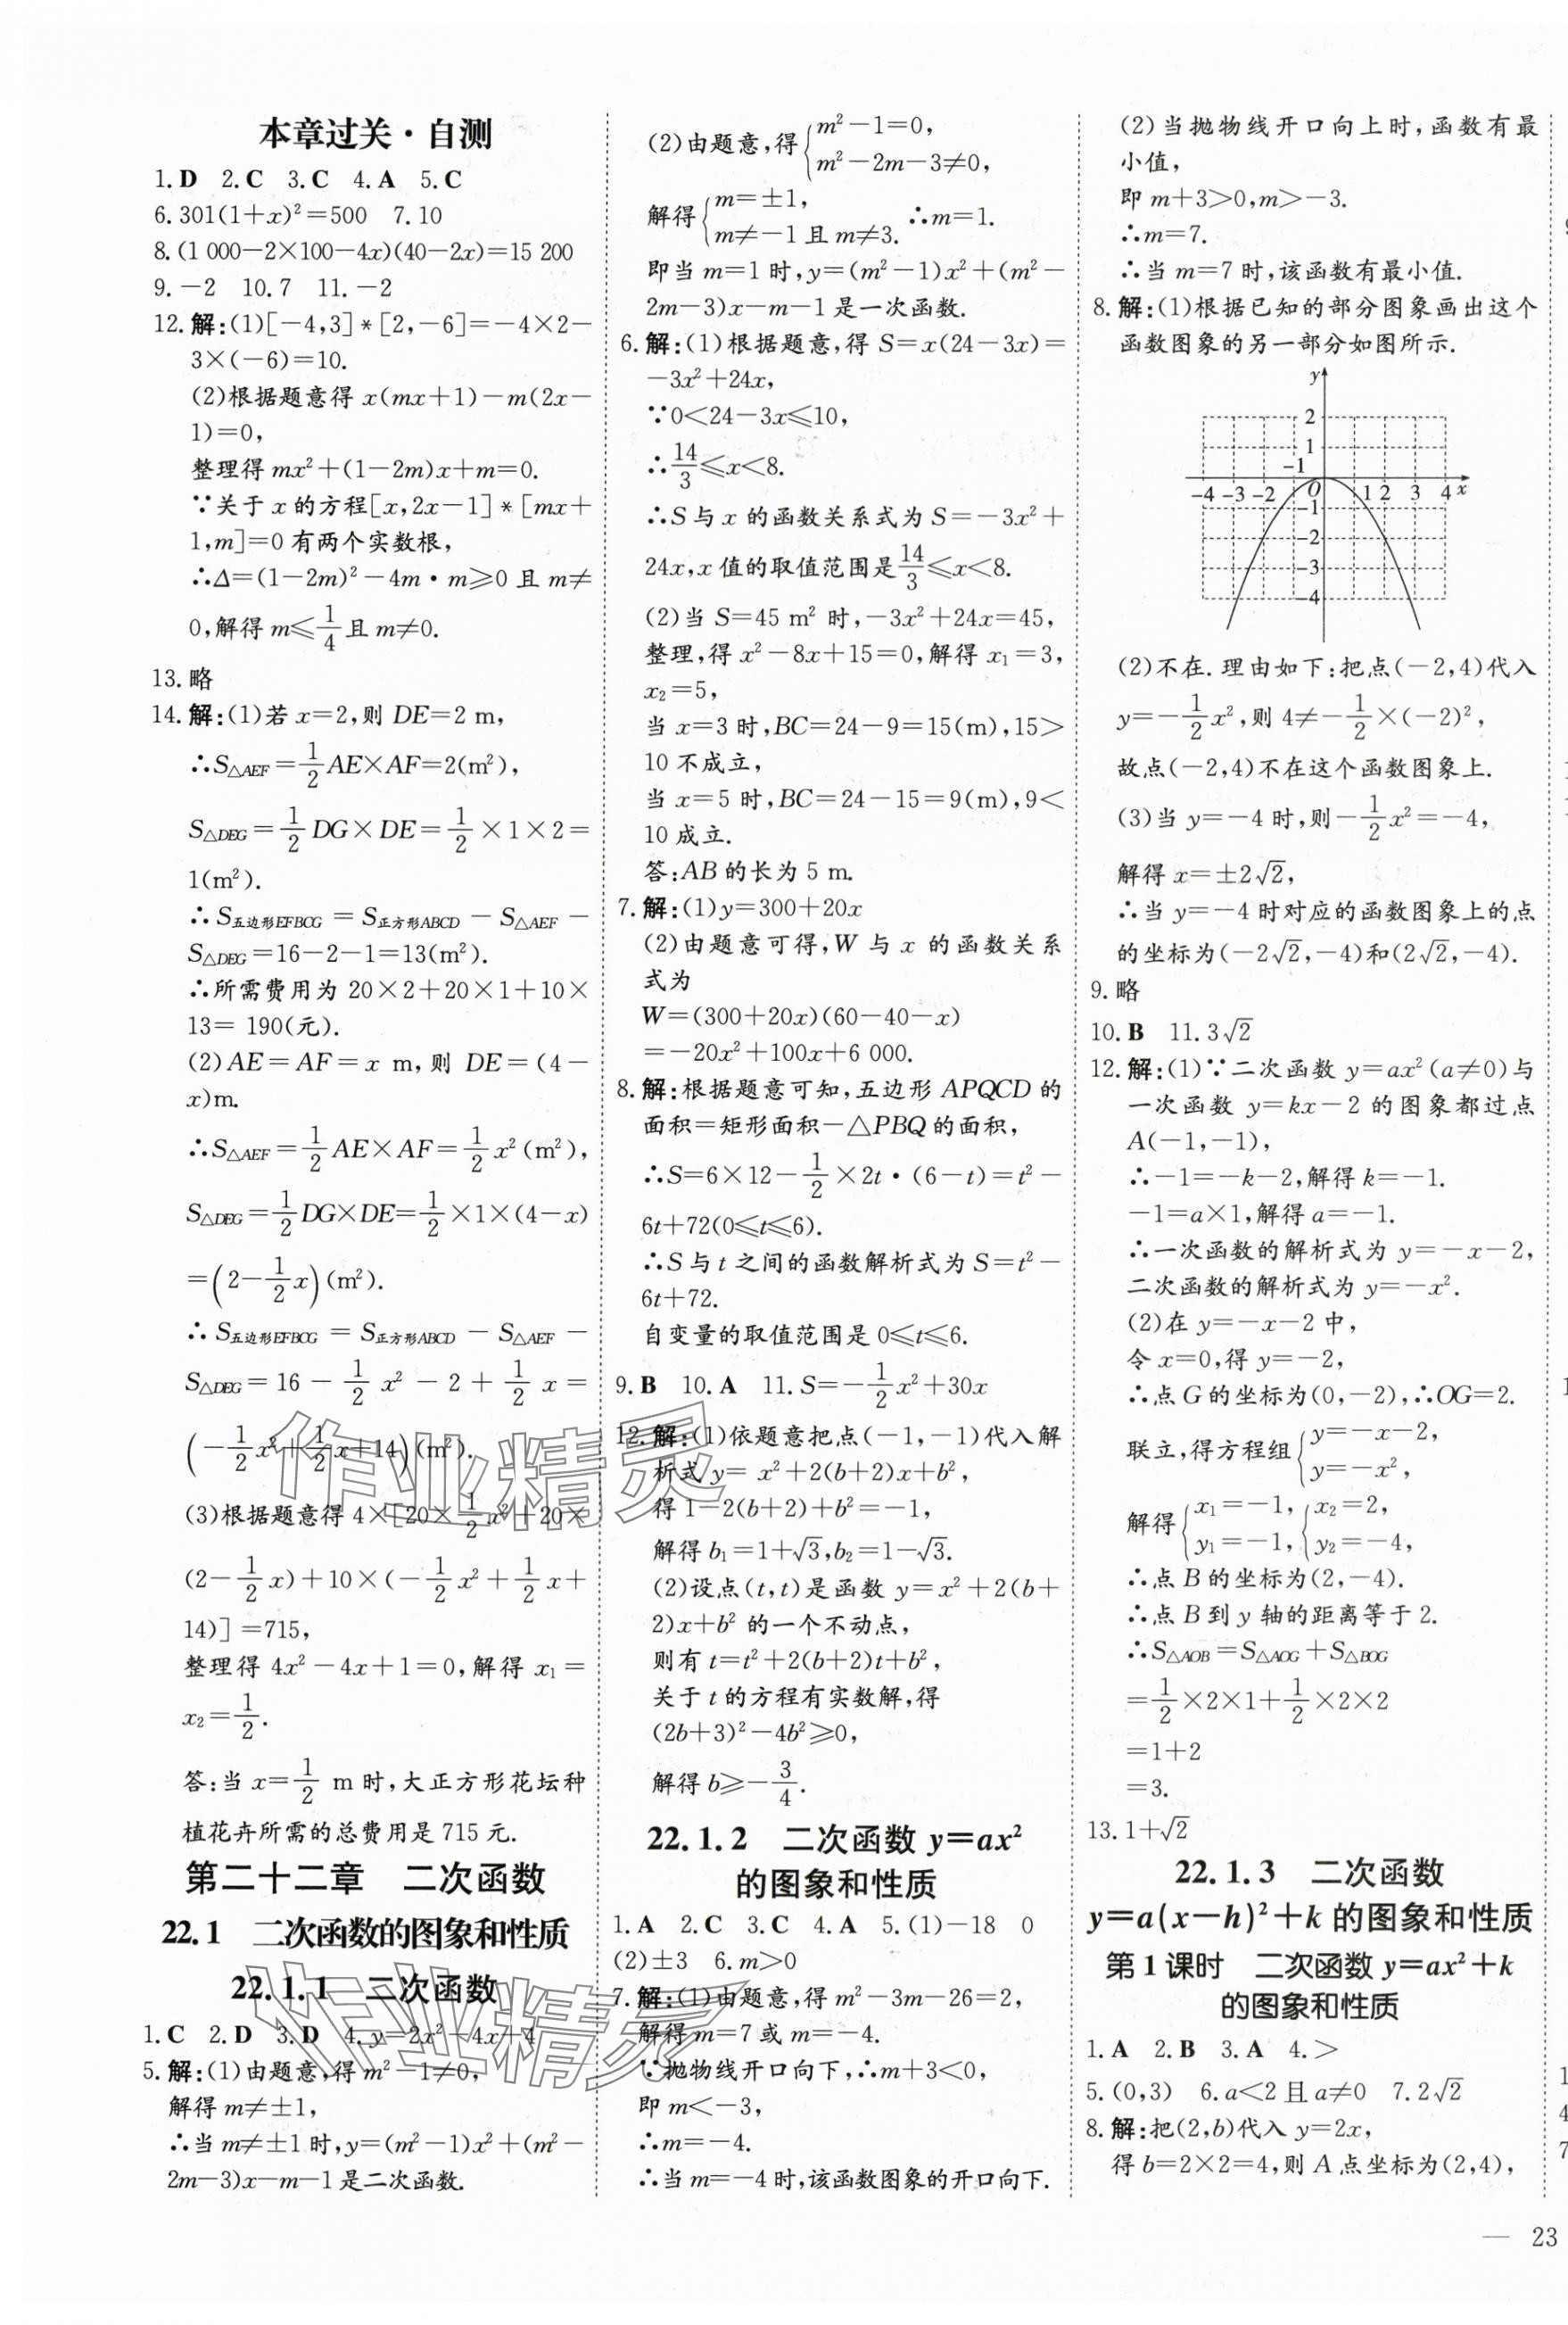 本章过关·自测
1.D 2.C 3.C 4.A 5.C
6.301(1+x)²=500 7.10
8.(1 000-2×100-4x)(40-2x)=15 200
9.-2 10.7 11.-2
12.解:(1)[-4,3]*[2,-6]=-4×2-
3×(-6)=10.
(2)根据题意得 x(mx+1)-m(2x-
1)=0,
整理得 mx²+(1-2m)x+m=0.
∵关于 x 的方程[x,2x-1]*[mx+
1,m]=0 有两个实数根,
∴Δ=(1-2m)²-4m·m≥0 且 m≠
0,解得 m≤1/4且 m≠0.
13.略
14.解:(1)若 x=2,则 DE=2 m,
∴S△AEF=1/2AE×AF=2(m²),
S△DEG=1/2DG×DE=1/2×1×2=
1(m²).
∴S五边形EFBCG=S正方形ABCD-S△AEF-
S△DEG=16-2-1=13(m²).
∴所需费用为 20×2+20×1+10×
13=190(元).
(2)AE=AF=x m,则 DE=(4-
x)m.
∴S△AEF=1/2AE×AF=1/2x²(m²),
S△DEG=1/2DG×DE=1/2×1×(4-x)
=(2-1/2x)(m²).
∴S五边形EFBCG=S正方形ABCD-S△AEF-
S△DEG=16-1/2x²-2+1/2x=
(-1/2x²+1/2x+14)(m²).
(3)根据题意得 4×[20×1/2x²+20×
(2-1/2x)+10×(-1/2x²+1/2x+
14)]=715,
整理得 4x²-4x+1=0,解得 x₁=
x₂=1/2.
答:当 x=1/2 m 时,大正方形花坛种
植花卉所需的总费用是 715 元.
第二十二章 二次函数
22.1 二次函数的图象和性质
22.1.1 二次函数
1.C 2.D 3.D 4.y=2x²-4x+4
5.解:(1)由题意,得 m²-1≠0,
解得 m≠±1,
∴当 m≠±1 时,y=(m²-1)x²+(m²-
2m-3)x-m-1 是二次函数.
(2)由题意,得{m²-1=0,
m²-2m-3≠0,
解得{m=±1,
m≠-1 且 m≠3. ∴m=1.
即当 m=1 时,y=(m²-1)x²+(m²-
2m-3)x-m-1 是一次函数.
6.解:(1)根据题意,得 S=x(24-3x)=
-3x²+24x,
∵0<24-3x≤10,
∴14/3≤x<8.
∴S 与 x 的函数关系式为 S=-3x²+
24x,x 值的取值范围是14/3≤x<8.
(2)当 S=45 m² 时,-3x²+24x=45,
整理,得 x²-8x+15=0,解得 x₁=3,
x₂=5,
当 x=3 时,BC=24-9=15(m),15>
10 不成立,
当 x=5 时,BC=24-15=9(m),9<
10 成立.
答:AB 的长为 5 m.
7.解:(1)y=300+20x
(2)由题意可得,W 与 x 的函数关系
式为
W=(300+20x)(60-40-x)
=-20x²+100x+6 000.
8.解:根据题意可知,五边形 APQCD 的
面积=矩形面积-△PBQ 的面积,
∴S=6×12-1/2×2t·(6-t)=t²-
6t+72(0≤t≤6).
∴S 与 t 之间的函数解析式为 S=t²-
6t+72.
自变量的取值范围是 0≤t≤6.
9.B 10.A 11.S=-1/2x²+30x
12.解:(1)依题意把点(-1,-1)代入解
析式 y= x²+2(b+2)x+b²,
得 1-2(b+2)+b²=-1,
解得 b₁=1+√3,b₂=1-√3.
(2)设点(t,t)是函数 y=x²+2(b+
2)x+b² 的一个不动点,
则有 t=t²+2(b+2)t+b²,
关于 t 的方程有实数解,得
(2b+3)²-4b²≥0,
解得 b≥-3/4.
22.1.2 二次函数 y=ax²
的图象和性质
1.A 2.C 3.C 4.A 5.(1)-18 0
(2)±3 6.m>0
7.解:(1)由题意,得 m²-3m-26=2,
解得 m=7 或 m=-4.
∵抛物线开口向下,∴m+3<0,
即 m<-3,
∴m=-4.
∴当 m=-4 时,该函数图象的开口向下.
(2)当抛物线开口向上时,函数有最
小值,
即 m+3>0,m>-3.
∴m=7.
∴当 m=7 时,该函数有最小值.
8.解:(1)根据已知的部分图象画出这个
函数图象的另一部分如图所示.
y
2
1
-1
-4 -3 -2 O 1 2 3 4 x
-1
-2
-3
-4
(2)不在.理由如下:把点(-2,4)代入
y=-1/2x²,则 4≠-1/2×(-2)²,
故点(-2,4)不在这个函数图象上.
(3)当 y=-4 时,则-1/2x²=-4,
解得 x=±2√2,
∴当 y=-4 时对应的函数图象上的点
的坐标为(-2√2,-4)和(2√2,-4).
9.略
10.B 11.3√2
12.解:(1)∵二次函数 y=ax²(a≠0)与
一次函数 y=kx-2 的图象都过点
A(-1,-1),
∴-1=-k-2,解得 k=-1.
-1=a×1,解得 a=-1.
∴一次函数的解析式为 y=-x-2,
二次函数的解析式为 y=-x².
(2)在 y=-x-2 中,
令 x=0,得 y=-2,
∴点 G 的坐标为(0,-2),∴OG=2.
联立,得方程组{y=-x-2,
y=-x²,
解得{x₁=-1, {x₂=2,
y₁=-1, y₂=-4,
∴点 B 的坐标为(2,-4).
∴点 B 到 y 轴的距离等于 2.
∴S△AOB=S△AOG+S△BOG
=1/2×2×1+1/2×2×2
=1+2
=3.
13.1+√2
22.1.3 二次函数
y=a(x-h)²+k 的图象和性质
第 1 课时 二次函数 y=ax²+k
的图象和性质
1.A 2.B 3.A 4.>
5.(0,3) 6.a<2 且 a≠0 7.2√2
8.解:把(2,b)代入 y=2x,
得 b=2×2=4,则 A 点坐标为(2,4),
— 23
作业精灵
作业精灵